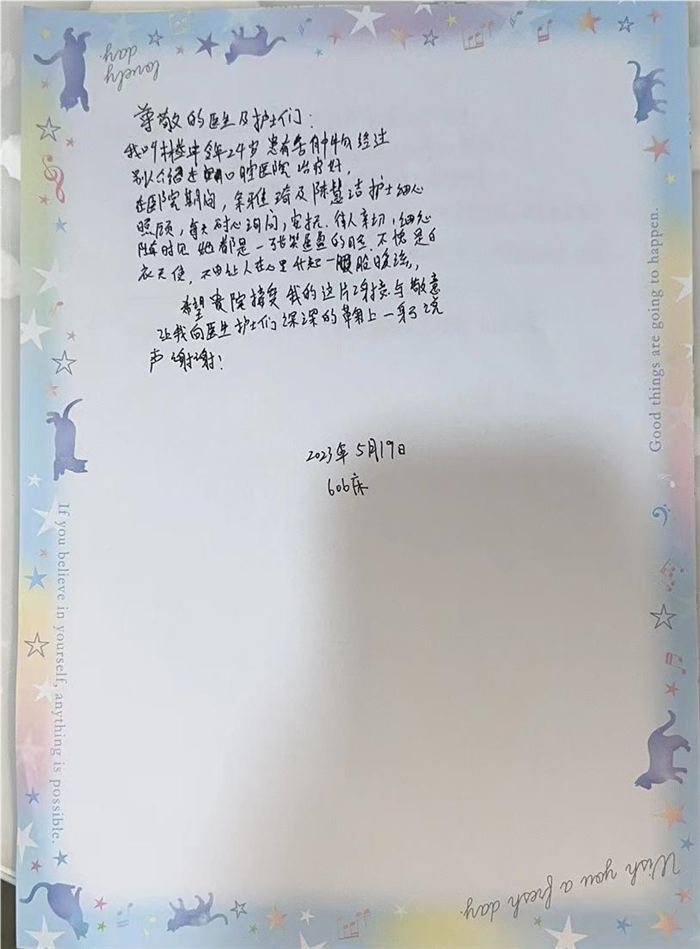 lovely
day
尊敬的医生及护士们：
我叫林 今年24岁患有舌 中 经过
别人介绍 口腔医院治疗好，
在医院期间， 及陈慧洁护士细心
照顾，每天耐心询问，安抚、待人亲切、细心
随时见她都是一张笑盈盈的 不愧是白
衣天使，不由让人在心里升起一股股暖流，，
希望贵院接受我的这片谢意与敬意
让我向医生护士们深深的鞠上一躬 说
声谢谢！
2023年5月19日
606床
Good things are going to happen.
If you believe in yourself, anything is possible.
Wish you a fresh day.